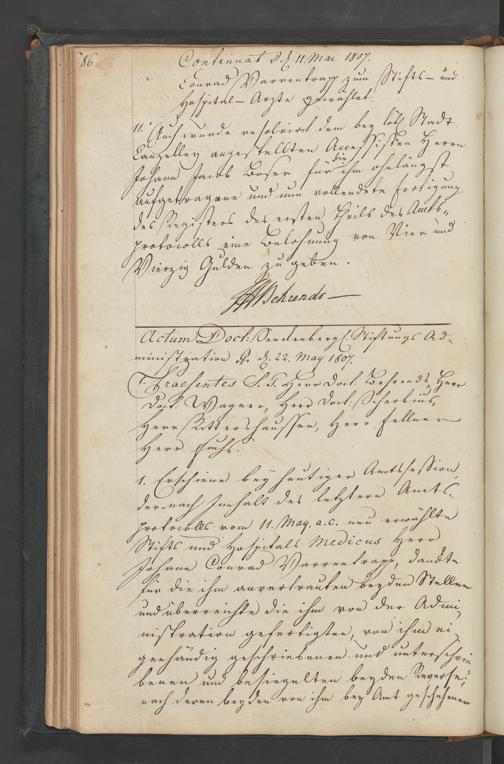 86
Continuat: d. d. 11. Mai 1807.
Conrad Varrentrapp zum Stifts- und
Hospital-Arzte gewählet.
11. Auch wurde resolvirt dem bey löbl. Stadt-
Canzelley angestellten Accessisten Herrn
Johann Jacob Boser für die ihm ohnlängst
aufgetragene und nun vollendete Fertigung
des Registers des ersten Theils des Amts-
Protocolls eine Belohnung von Vier und
Vierzig Gulden zu geben.
Behrends
Actum Doct: Senckenbergl: Stiftungs Ad-
ministration d. 22. May 1807.
Praesentes S. T. Herr Doct. Behrends, Herr
Doct. Wagner, Herr Doct: Scherbius,
Herr Rittershaussen, Herr Fellner
Herr Fuchs.
1. Erschiene bey heutiger Amtssession,
der nach Innhalt des letztern Amts-
Protocolls vom 11. May. a. c. neu erwählte
Stifts und Hospitals Medicus Herr
Johann Conrad Varrentrapp, dankte
für die ihm anvertrauten beyden Stellen
und überreichte die ihm von der Admi
nistration gefertigten, von ihm ei
genhändig geschriebenen und unterschrie
benen und besiegelten beyden Reverse,
nach deren beyden von ihm bey Amt geschehenen